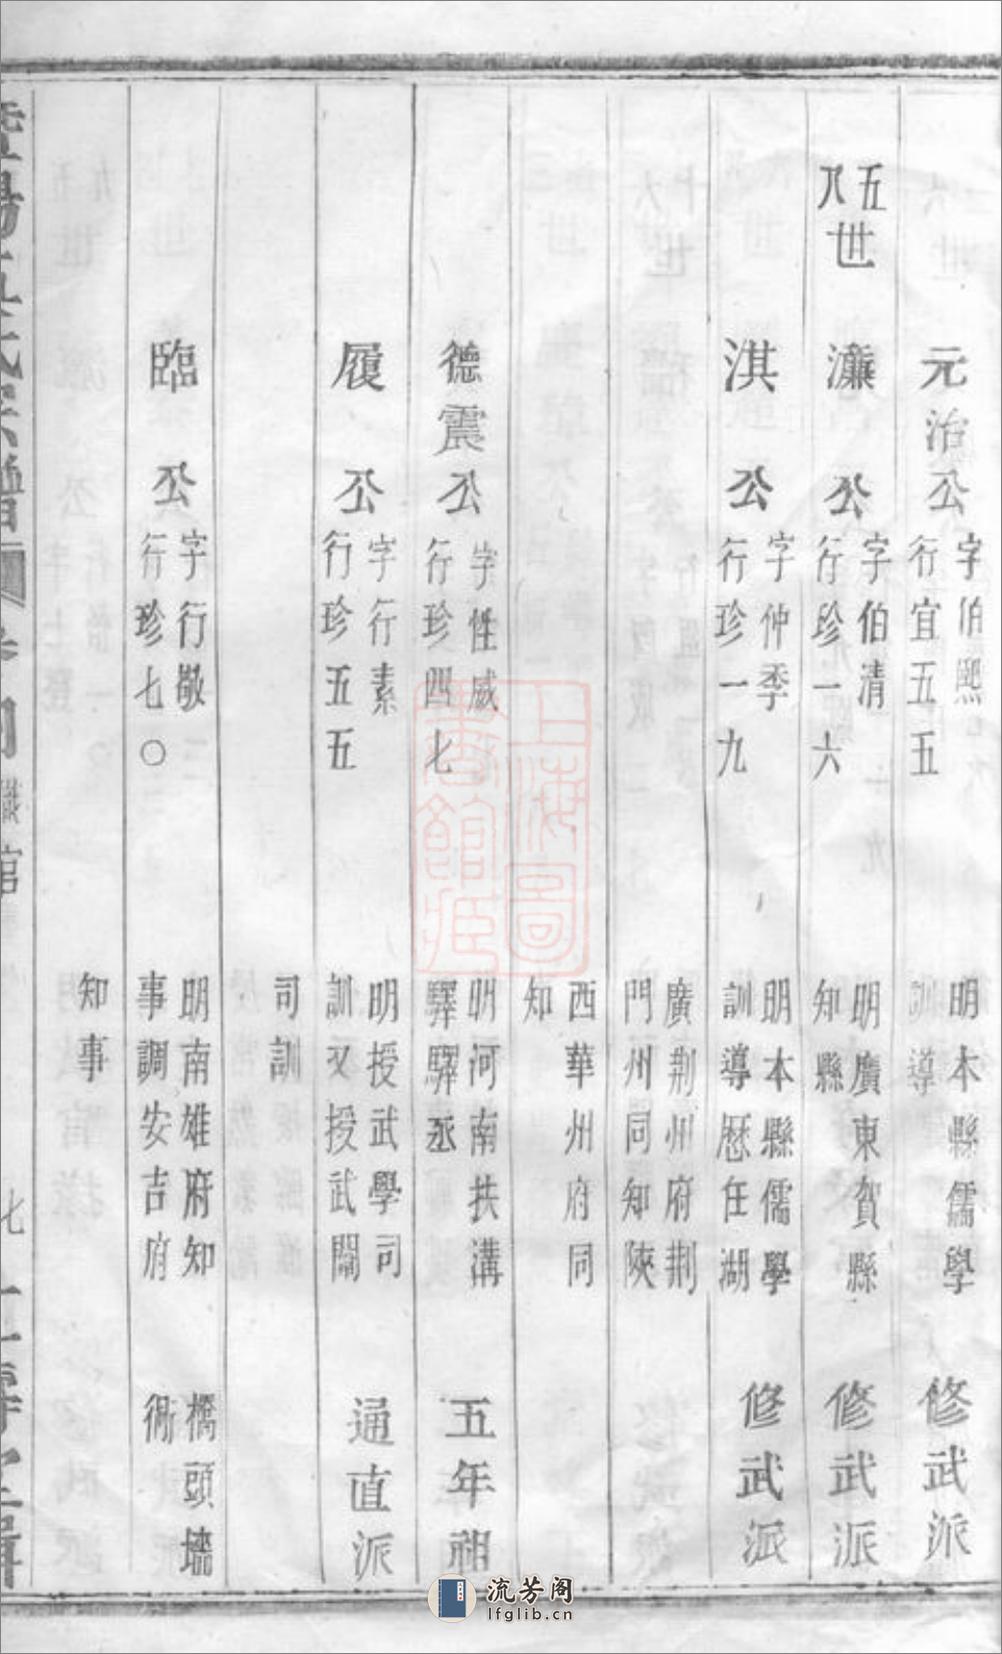 元治公 字伯熙 行宜五五 明本縣儒學訓導 修武派
五八世
濂公 字伯清 行珍一六 明廣東賀縣知縣 修武派
淇公 字仲季 行珍一九 明本縣儒學訓導歷任湖 修武派
廣荆州府荆門州同知陝
西華州府同知
德震公 字性威 行珍四七 明河南扶溝驛驛丞 五年祖
履公 字行素 行珍五五 明授武學司訓又授武闈 通直派
司訓
臨公 字行敬 行珍七〇 明南雄府知事調安吉府 橋頭墻衖
知事
職官
七
上海圖書館藏
流芳阁
lfglib.cn